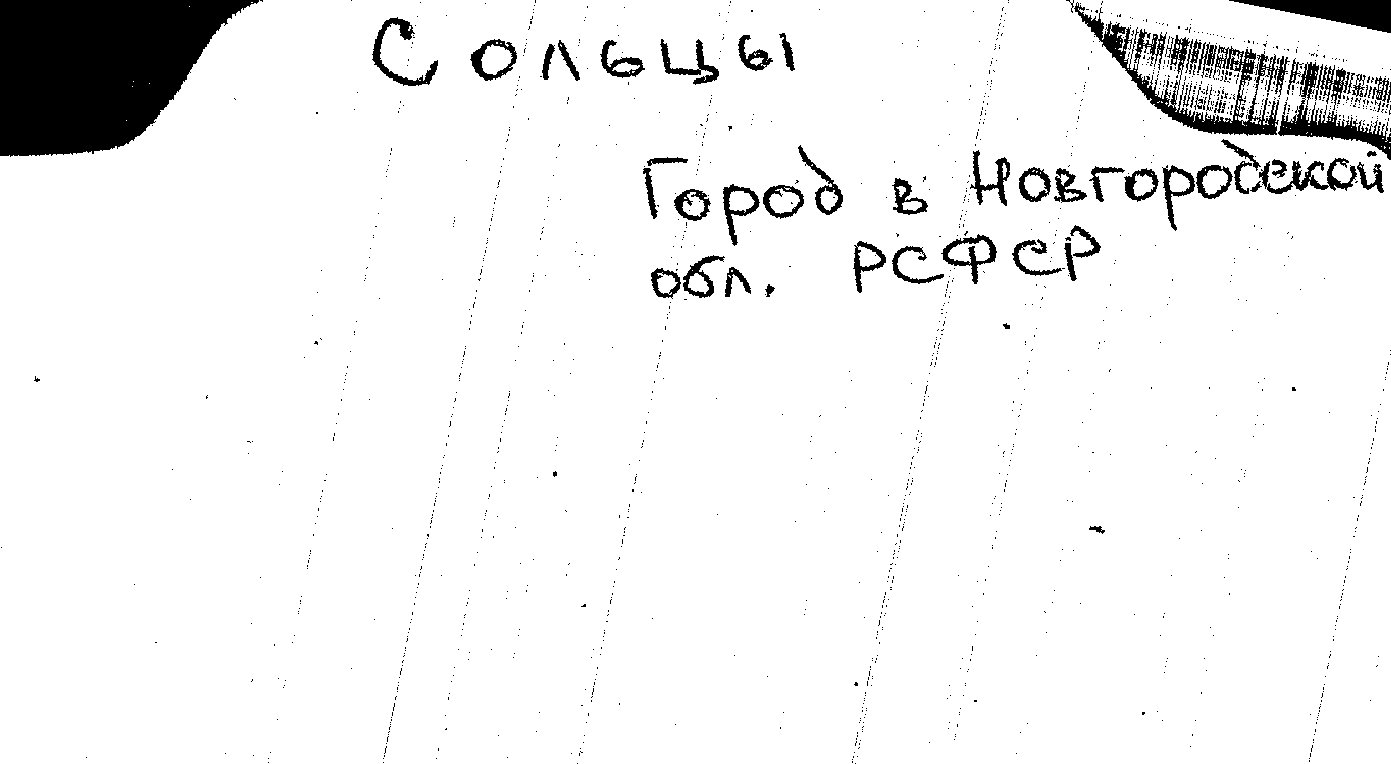 Сольцы
Город в Новгородской
обл. РСФСР